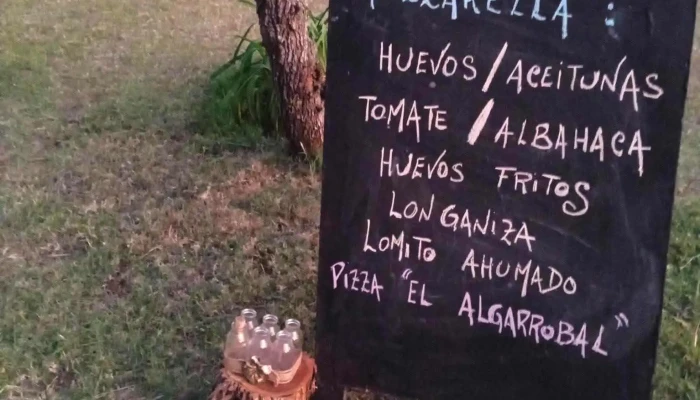 HUEVOS/ACEITUNAS
TOMATE/ALBAHACA
HUEVOS FRITOS
LONGANIZA
LOMITO AHUMADO
PIZZA "EL ALGARROBAL"